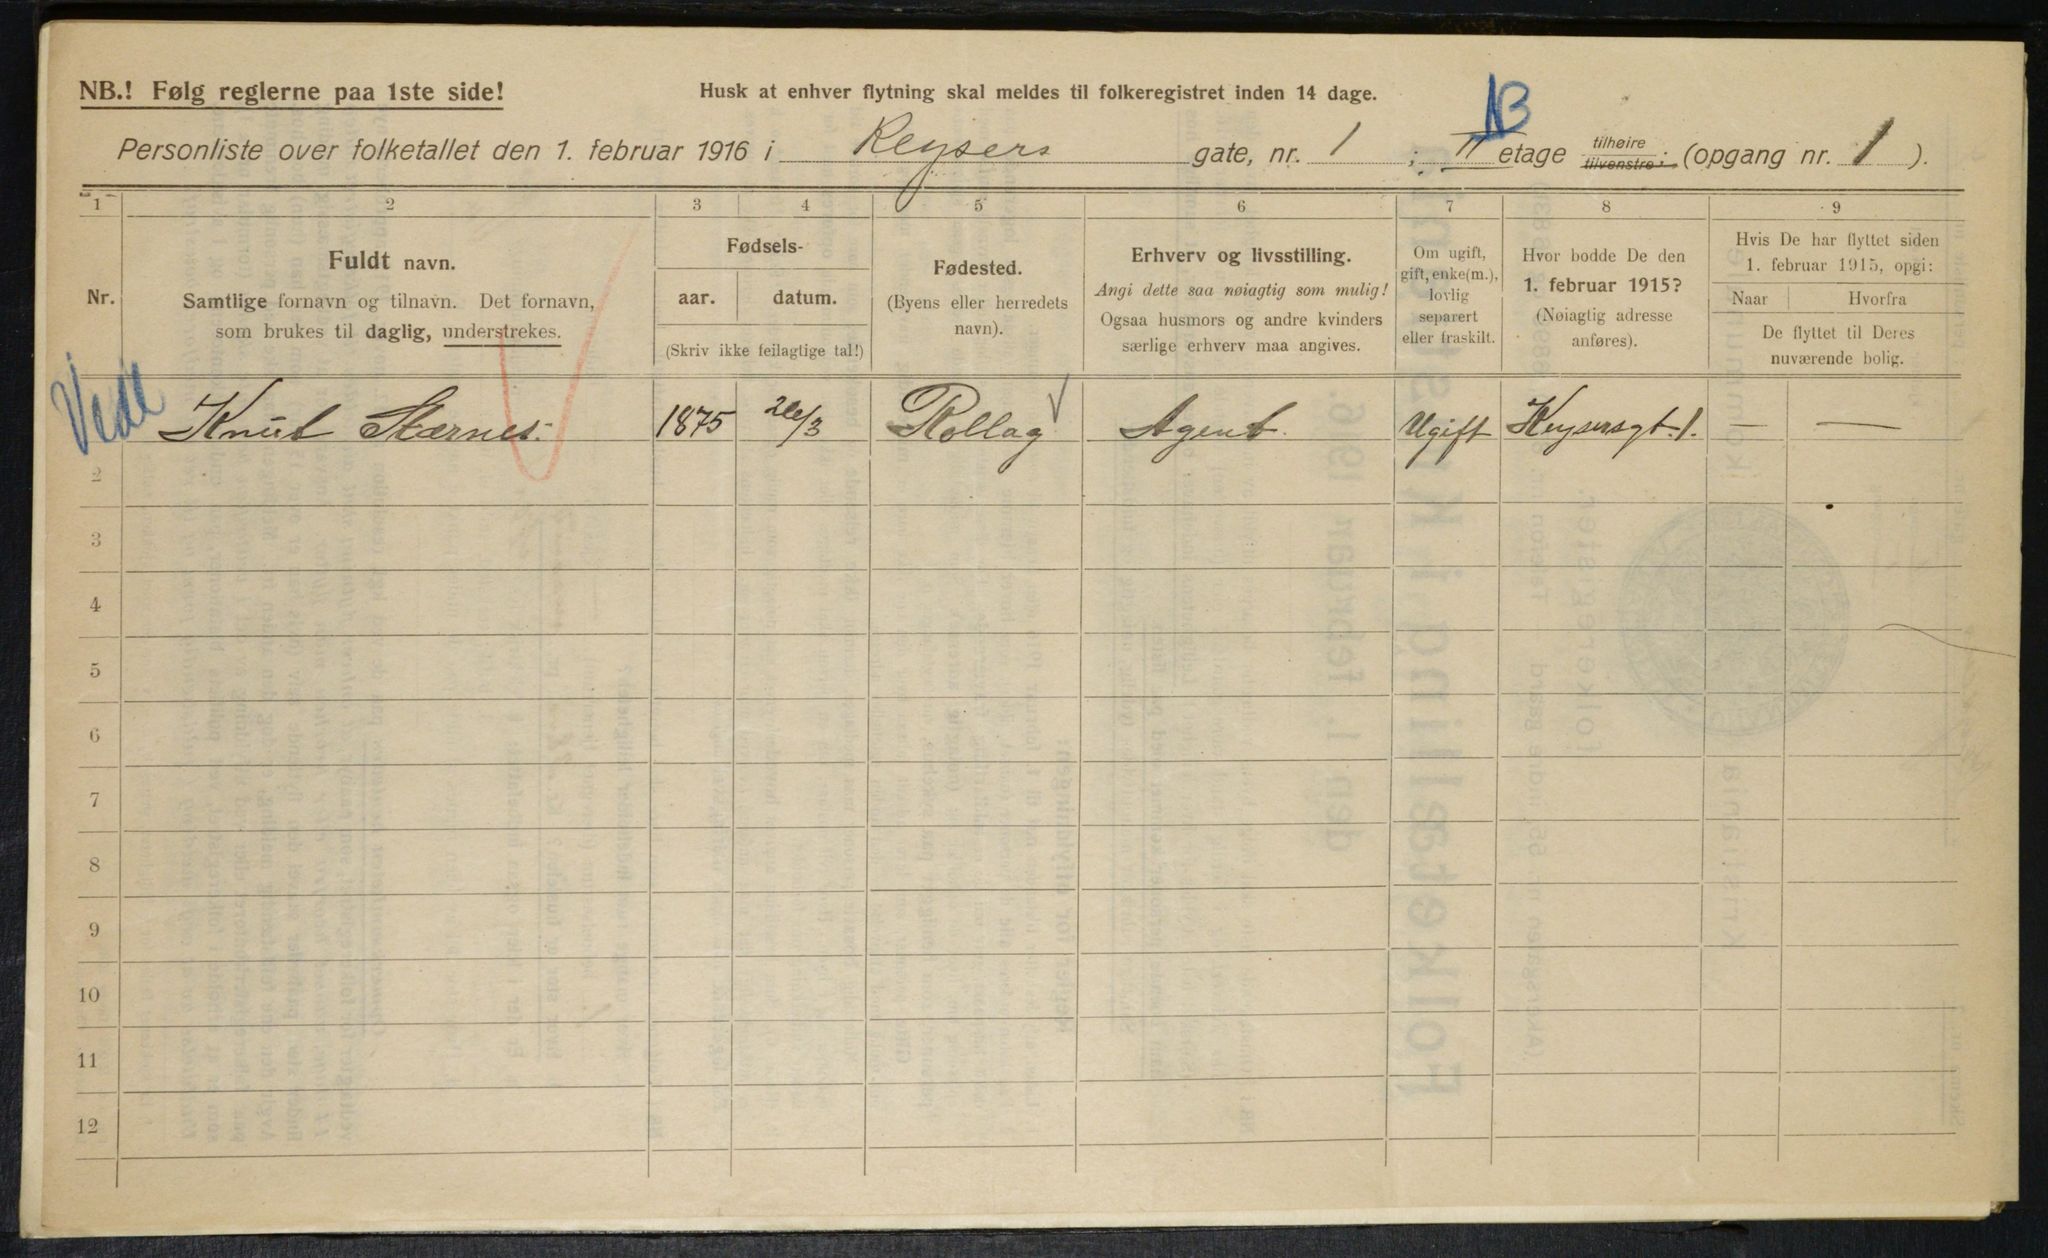 NB.! Følg reglerne paa 1ste side! Husk at enhver flytning skal meldes til folkeregistret inden 14 dage.
Personliste over folketallet den 1. februar 1916 i Keysers gate, nr. 1 ; II etage tilhøire tilvenstre; (opgang nr. 1 ).
1 2 3 4 5 6 7 8 9
Nr.
Fuldt navn.
Samtlige fornavn og tilnavn. Det fornavn,
som brukes til daglig, understrekes.
Fødsels-
aar. datum.
(Skriv ikke feilagtige tal!)
Fødested.
(Byens eller herredets
navn).
Erhverv og livsstilling.
Angi dette saa nøiagtig som mulig!
Ogsaa husmors og andre kvinders
særlige erhverv maa angives.
Om ugift,
gift, enke(m.),
lovlig
separert
eller fraskilt.
Hvor bodde De den
1. februar 1915?
(Nøiagtig adresse
anføres).
Hvis De har flyttet siden
1. februar 1915, opgi:
Naar Hvorfra
De flyttet til Deres
nuværende bolig.
Knut Stærnes. 1875 26/3 Rollag Agent. Ugift Keysersgt. 1. — —
2
3
4
5
6
7
8
9
10
11
12